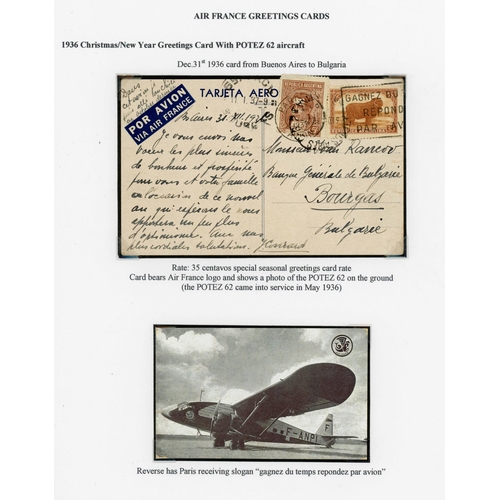 AIR FRANCE GREETINGS CARDS
1936 Christmas/New Year Greetings Card With POTEZ 62 aircraft
Dec.31st 1936 card from Buenos Aires to Bulgaria
TARJETA AERO
PAR AVION
VIA AIR FRANCE
GAGNEZ DU
REPOND
PAR AV
Aires 31.XII.193
vous envoi
voeux les plus sincères
de bonheur et prospérité
pour vous et votre famille
l'occasion de ce nouvel
an qui espérons le vous
apportera un peu plus
d'optimisme. Avec mes
plus cordiales salutations.
Monsieur
Banque Générale de Bulgarie
Bourgas
Bulgarie
Rate: 35 centavos special seasonal greetings card rate
Card bears Air France logo and shows a photo of the POTEZ 62 on the ground
(the POTEZ 62 came into service in May 1936)
F-ANPI
Reverse has Paris receiving slogan “gagnez du temps repondez par avion”